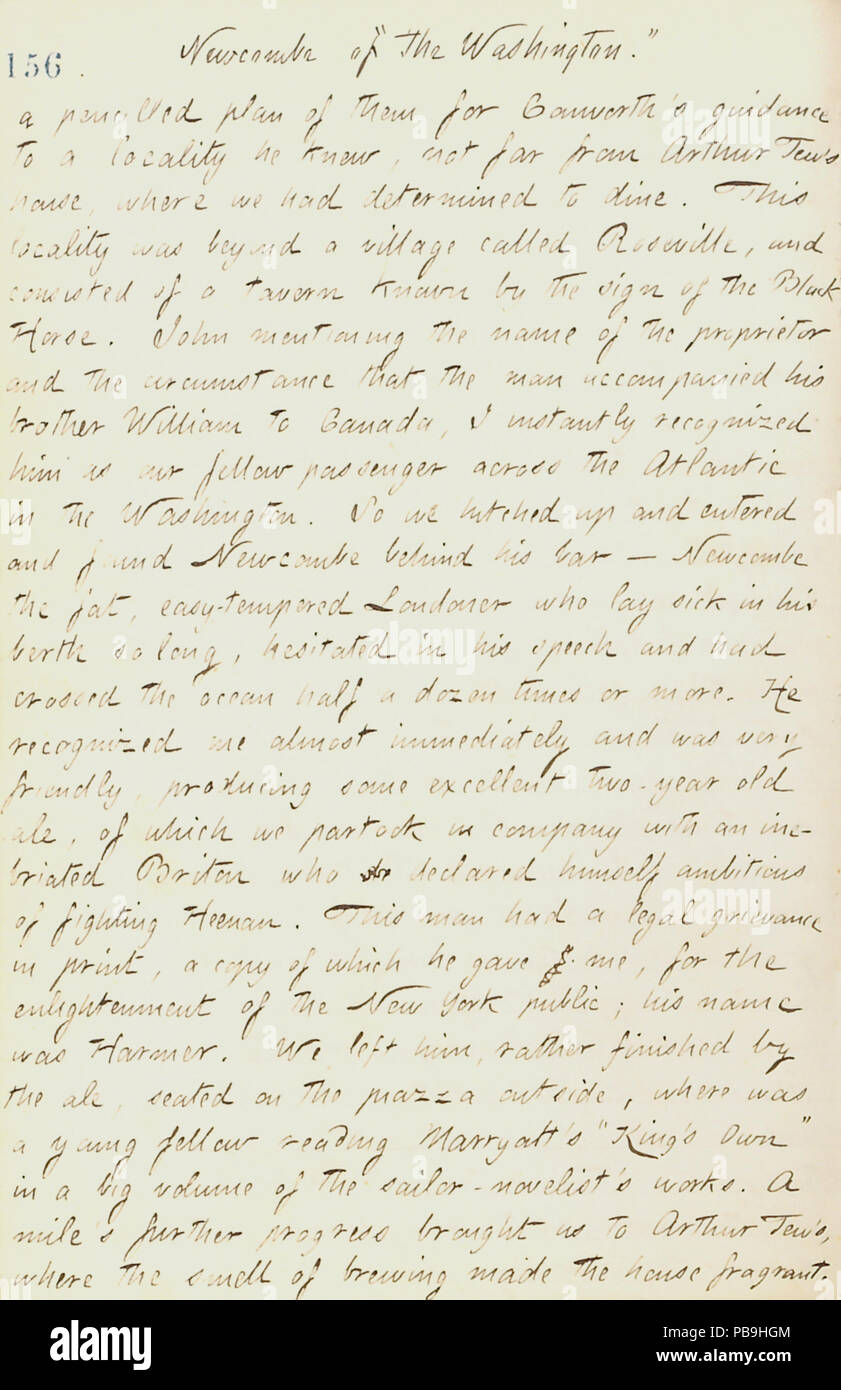 156.
Newcombe of "the Washington."
a pencilled plan of them for Conworth's guidance
to a locality he knew, not far from Arthur Tew's
house, where we had determined to dine. This
locality was beyond a village called Roseville, and
consisted of a tavern known by the sign of the Black
Horse. John mentioning the name of the proprietor
and the circumstance that the man accompanied his
brother William to Canada, I instantly recognized
him as our fellow passenger across the Atlantic
in the Washington. So we hitched up and entered
and found Newcombe behind his bar — Newcombe
the fat, easy-tempered Londoner who lay sick in his
berth so long, hesitated in his speech and had
crossed the ocean half a dozen times or more. He
recognized me almost immediately and was very
friendly, producing some excellent two-year old
ale, of which we partook in company with an ine-
briated Briton who declared himself ambitious
of fighting Heenan. This man had a legal grievance
in print, a copy of which he gave me, for the
enlightenment of the New York public; his name
was Harmer. We left him, rather finished by
the ale, seated on the piazza outside, where was
a young fellow reading Marryatt's "King's Own"
in a big volume of the sailor-novelist's works. A
mile's further progress brought us to Arthur Tew's,
where the smell of brewing made the house fragrant.
alamy
Image ID: PB9HGM
www.alamy.com